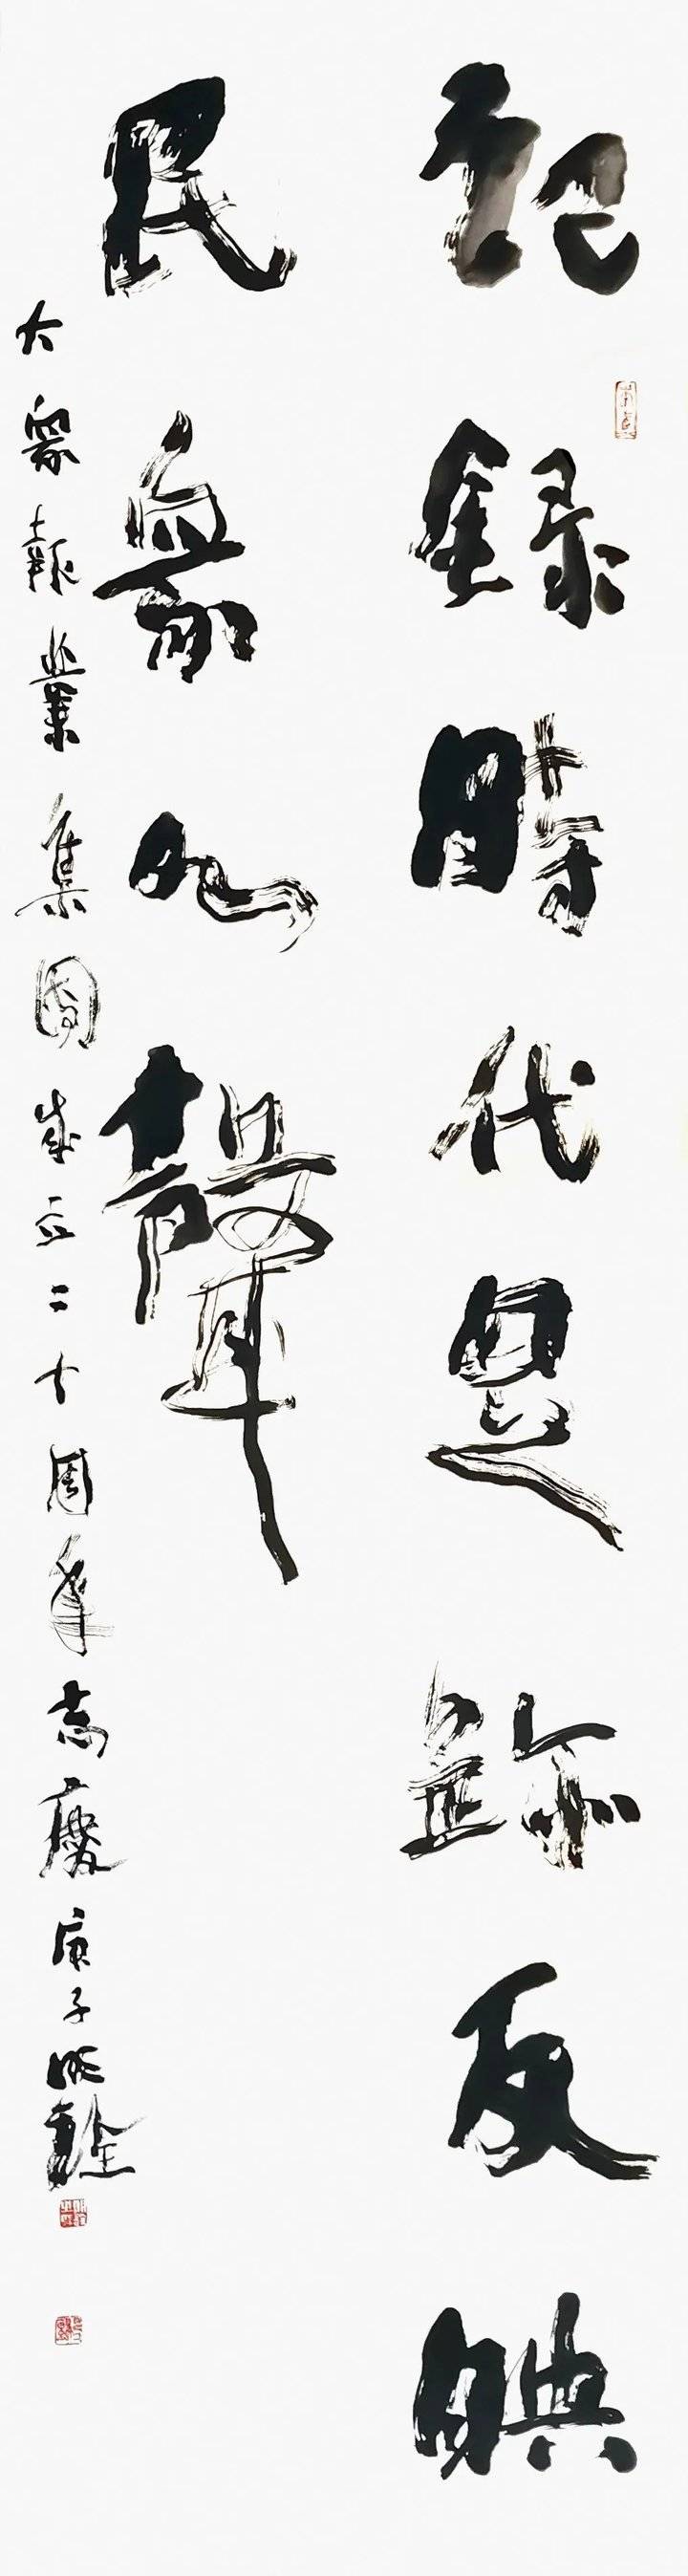 記錄時代足跡反映
民衆心聲
大衆報業集團成立二十周年志慶庚子明詮